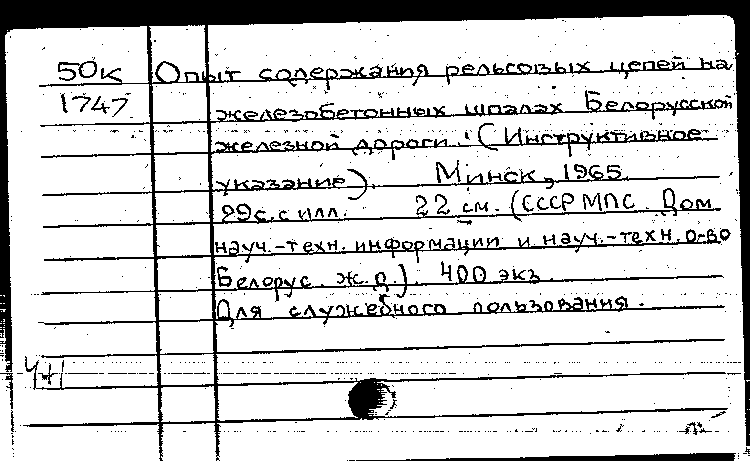 50к Опыт содержания рельсовых цепей на
1747 железобетонных шпалах Белорусской
железной дороги. (Инструктивное
указание). Минск, 1965.
29с. с илл. 22 см. (СССР МПС. Дом
науч.-техн. информации и науч.-техн. о-во
Белорус. ж.д.). 400 экз.
Для служебного пользования.